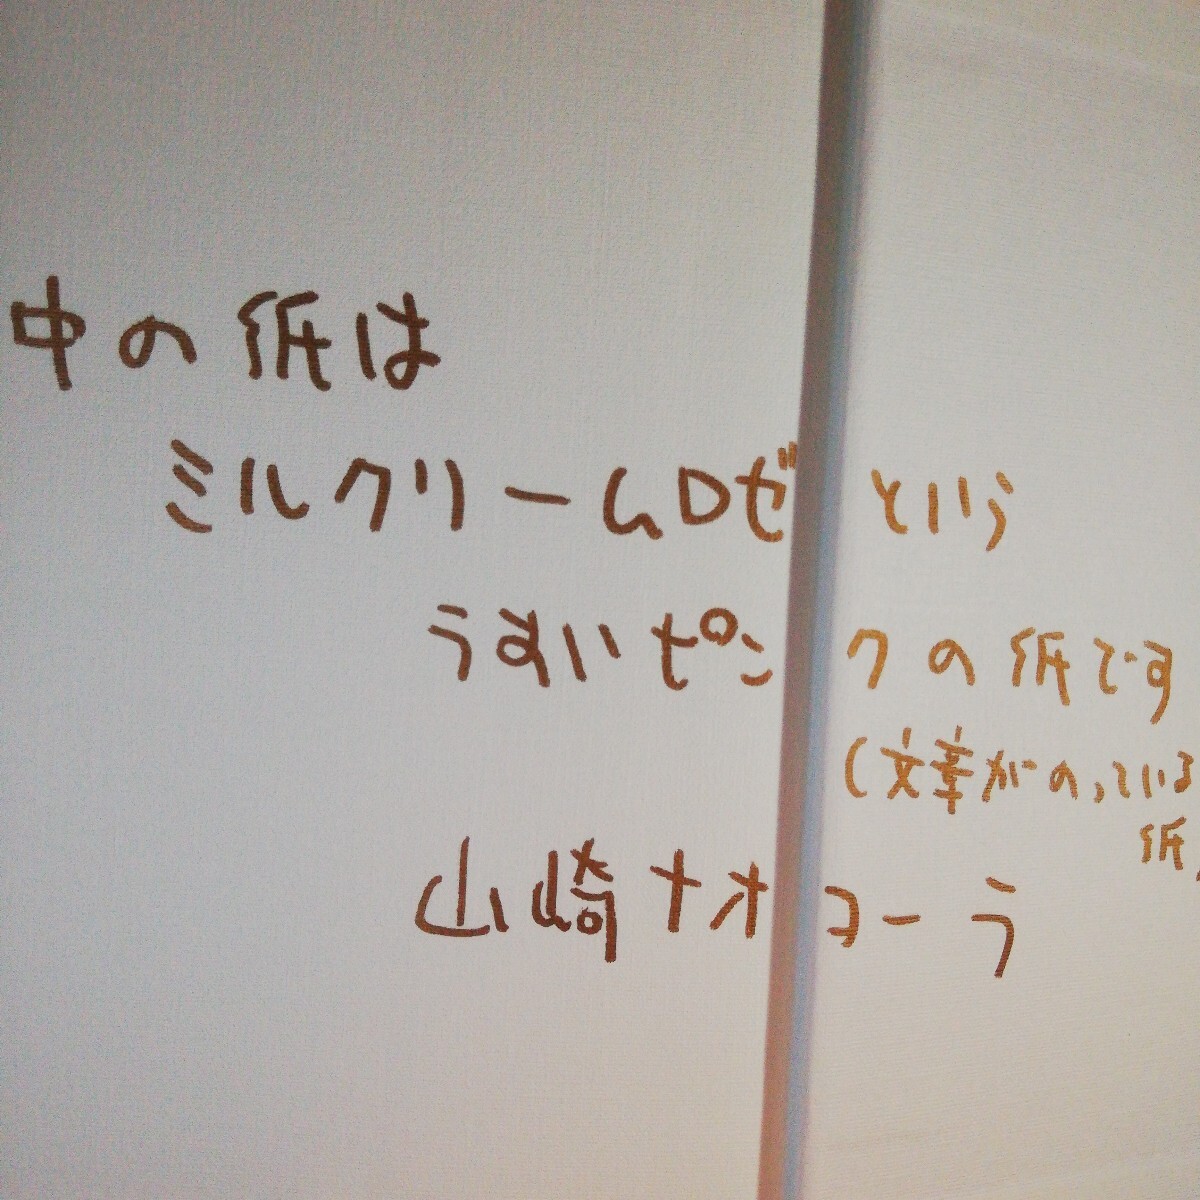 中の紙は
ミルクリームロゼという
うすいピンクの紙です
(文章がのっている
紙)
山崎ナオコーラ